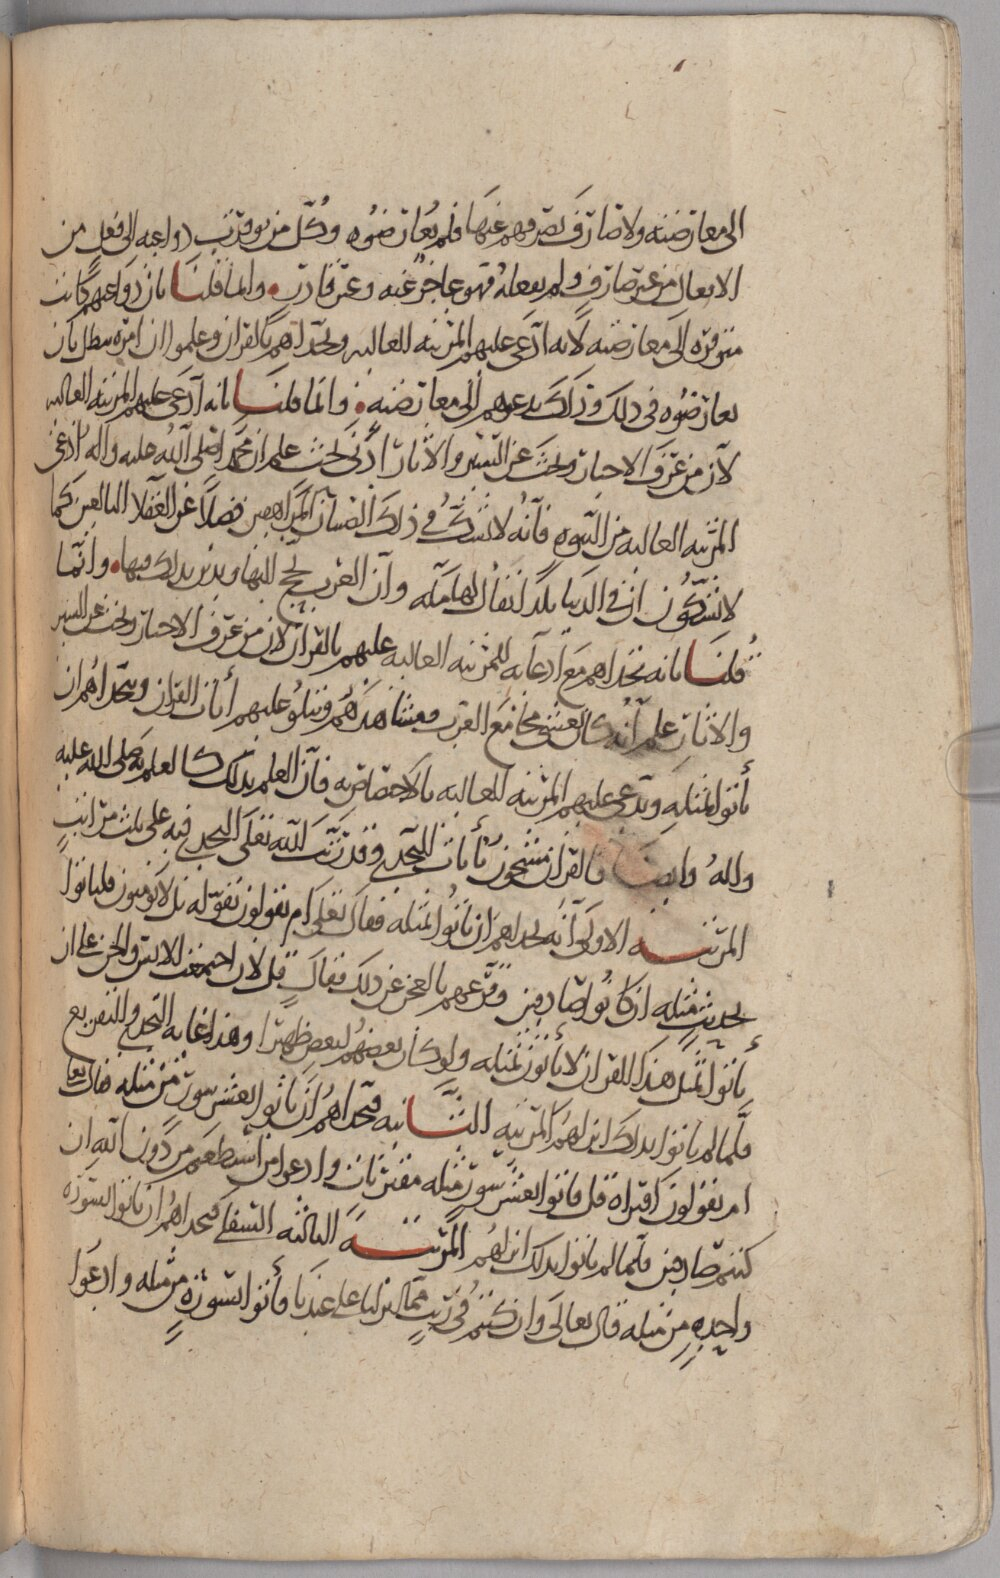 الى معارضته ولا صارف يصرفهم عنها فلم يعارضوه وكل من توفرت دواعيه الى فعل من
الافعال من غير صارف ولم يفعله فهو عاجز عنه وغير قادر وانما قلنا بان دواعيهم كانت
متوفره الى معارضته لانه ادعى عليهم المرتبه العاليه وتحداهم بالقران وعلموا ان امره يبطل بان
يعارضوه في ذلك وذلك يدعوهم الى معارضته وانما قلنا بانه ادعى عليهم المرتبه العاليه
لان من عرف الاخبار وبحث عن السير والاثار ادنى بحث علم ان محمدا صلى الله عليه واله ادعى
المرتبه العاليه من النبوه فانه لا تشك في ذلك النسوان المراهقين فضلا عن العقلا البالغين كما
لا يشكون ان في الدنيا بلدا يقال لها مكه وان العرب تحج اليها ويدين بذلك فيها وانما
قلنا بانه تحداهم مع ادعايه للمرتبه العاليه عليهم بالقران لان من عرف الاخبار وبحث عن السير
والاثار علم انه كان يغشى مجامع العرب ومشاهدهم ويتلو عليهم أيات القران ويتحداهم ان
يأتوا بمثله ويدعي عليهم المرتبه العاليه بالاختصاص به فان العلم بذلك كالعلم به صلى الله عليه
واله وايضا فالقران مشحون بأيات التحدي وقد رتب الله تعلى التحدي فيه على ثلث مراتب
المرتبه الاولى انه تحداهم ان يأتوا بمثله فقال تعلى ام يقولون تقوله بل لا يومنون فليأتوا
بحديث مثله ان كانوا صادقين وقرعهم بالعجز عن ذلك فقال قل لان اجتمعت الانس والجن على ان
يأتوا بمثل هذا القران لا يأتون بمثله ولو كان بعضهم لبعض ظهيرا وهذا غايه التحدي والتقريع
فلما لم يأتوا بذلك انزلهم المرتبه الثانيه فتحداهم ان يأتوا بعشر سور من مثله فقال تعا
ام يقولون افتراه قل فاتوا بعشر سور مثله مفتريات وادعوا من استطعتم من دون الله ان
كنتم صادقين فلما لم يأتوا بذلك انزلهم المرتبه الثالثه السفلى فتحداهم ان يأتوا بسوره
واحده من مثله قال تعالى وان كنتم في ريب مما نزلنا على عبدنا فأتوا بسورة من مثله وادعوا